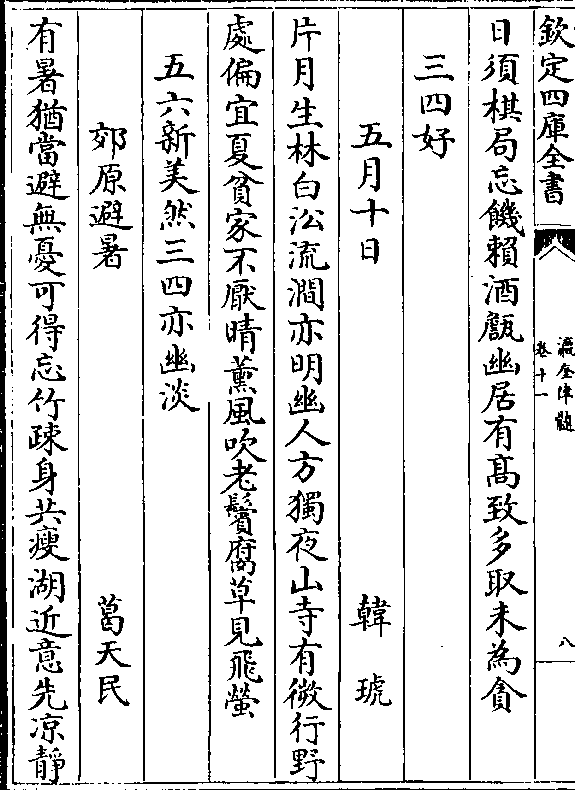 欽定四庫全書
瀛奎律髓
卷十一
八
日須棋局忘饑賴酒甔幽居有髙致多取未為貪
三四好
五月十日 韓琥
片月生林白沿流澗亦明幽人方獨夜山寺有微行野
處偏宜夏貧家不厭晴薰風吹老鬢腐草見飛螢
五六新美然三四亦幽淡
郊原避暑 葛天民
有暑猶當避無憂可得忘竹疎身共瘦湖近意先凉靜